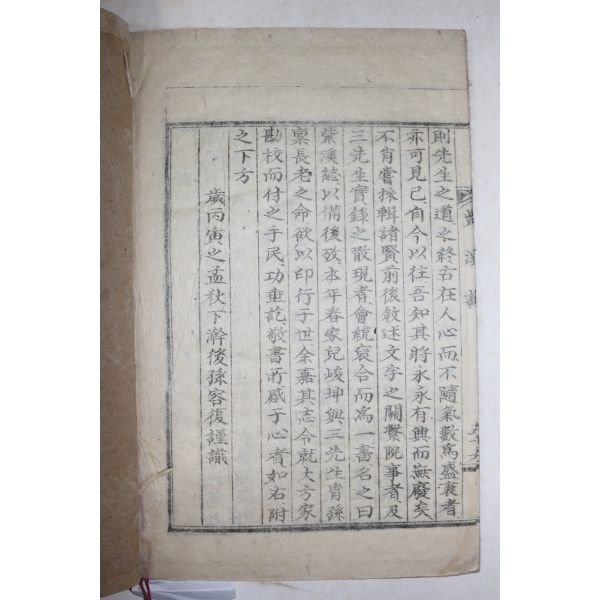 則先生之道之終古在人心而不隨氣數爲盛衰者
亦可見已自今以往吾知其將永永有興而無廢矣
不肖嘗採輯諸賢前後敘述文字之關繫院事者及
三先生實錄之散現者會統裒合而爲一書名之曰
紫溪誌以備後攷本年春家兒峻坤與三先生胄孫
稟長老之命欲以印行于世余嘉其志令就大方家
勘校而付之手民功垂訖敬書所感于心者如右附
之下方
歲丙寅之孟秋下澣後孫容復謹識
紫溪誌